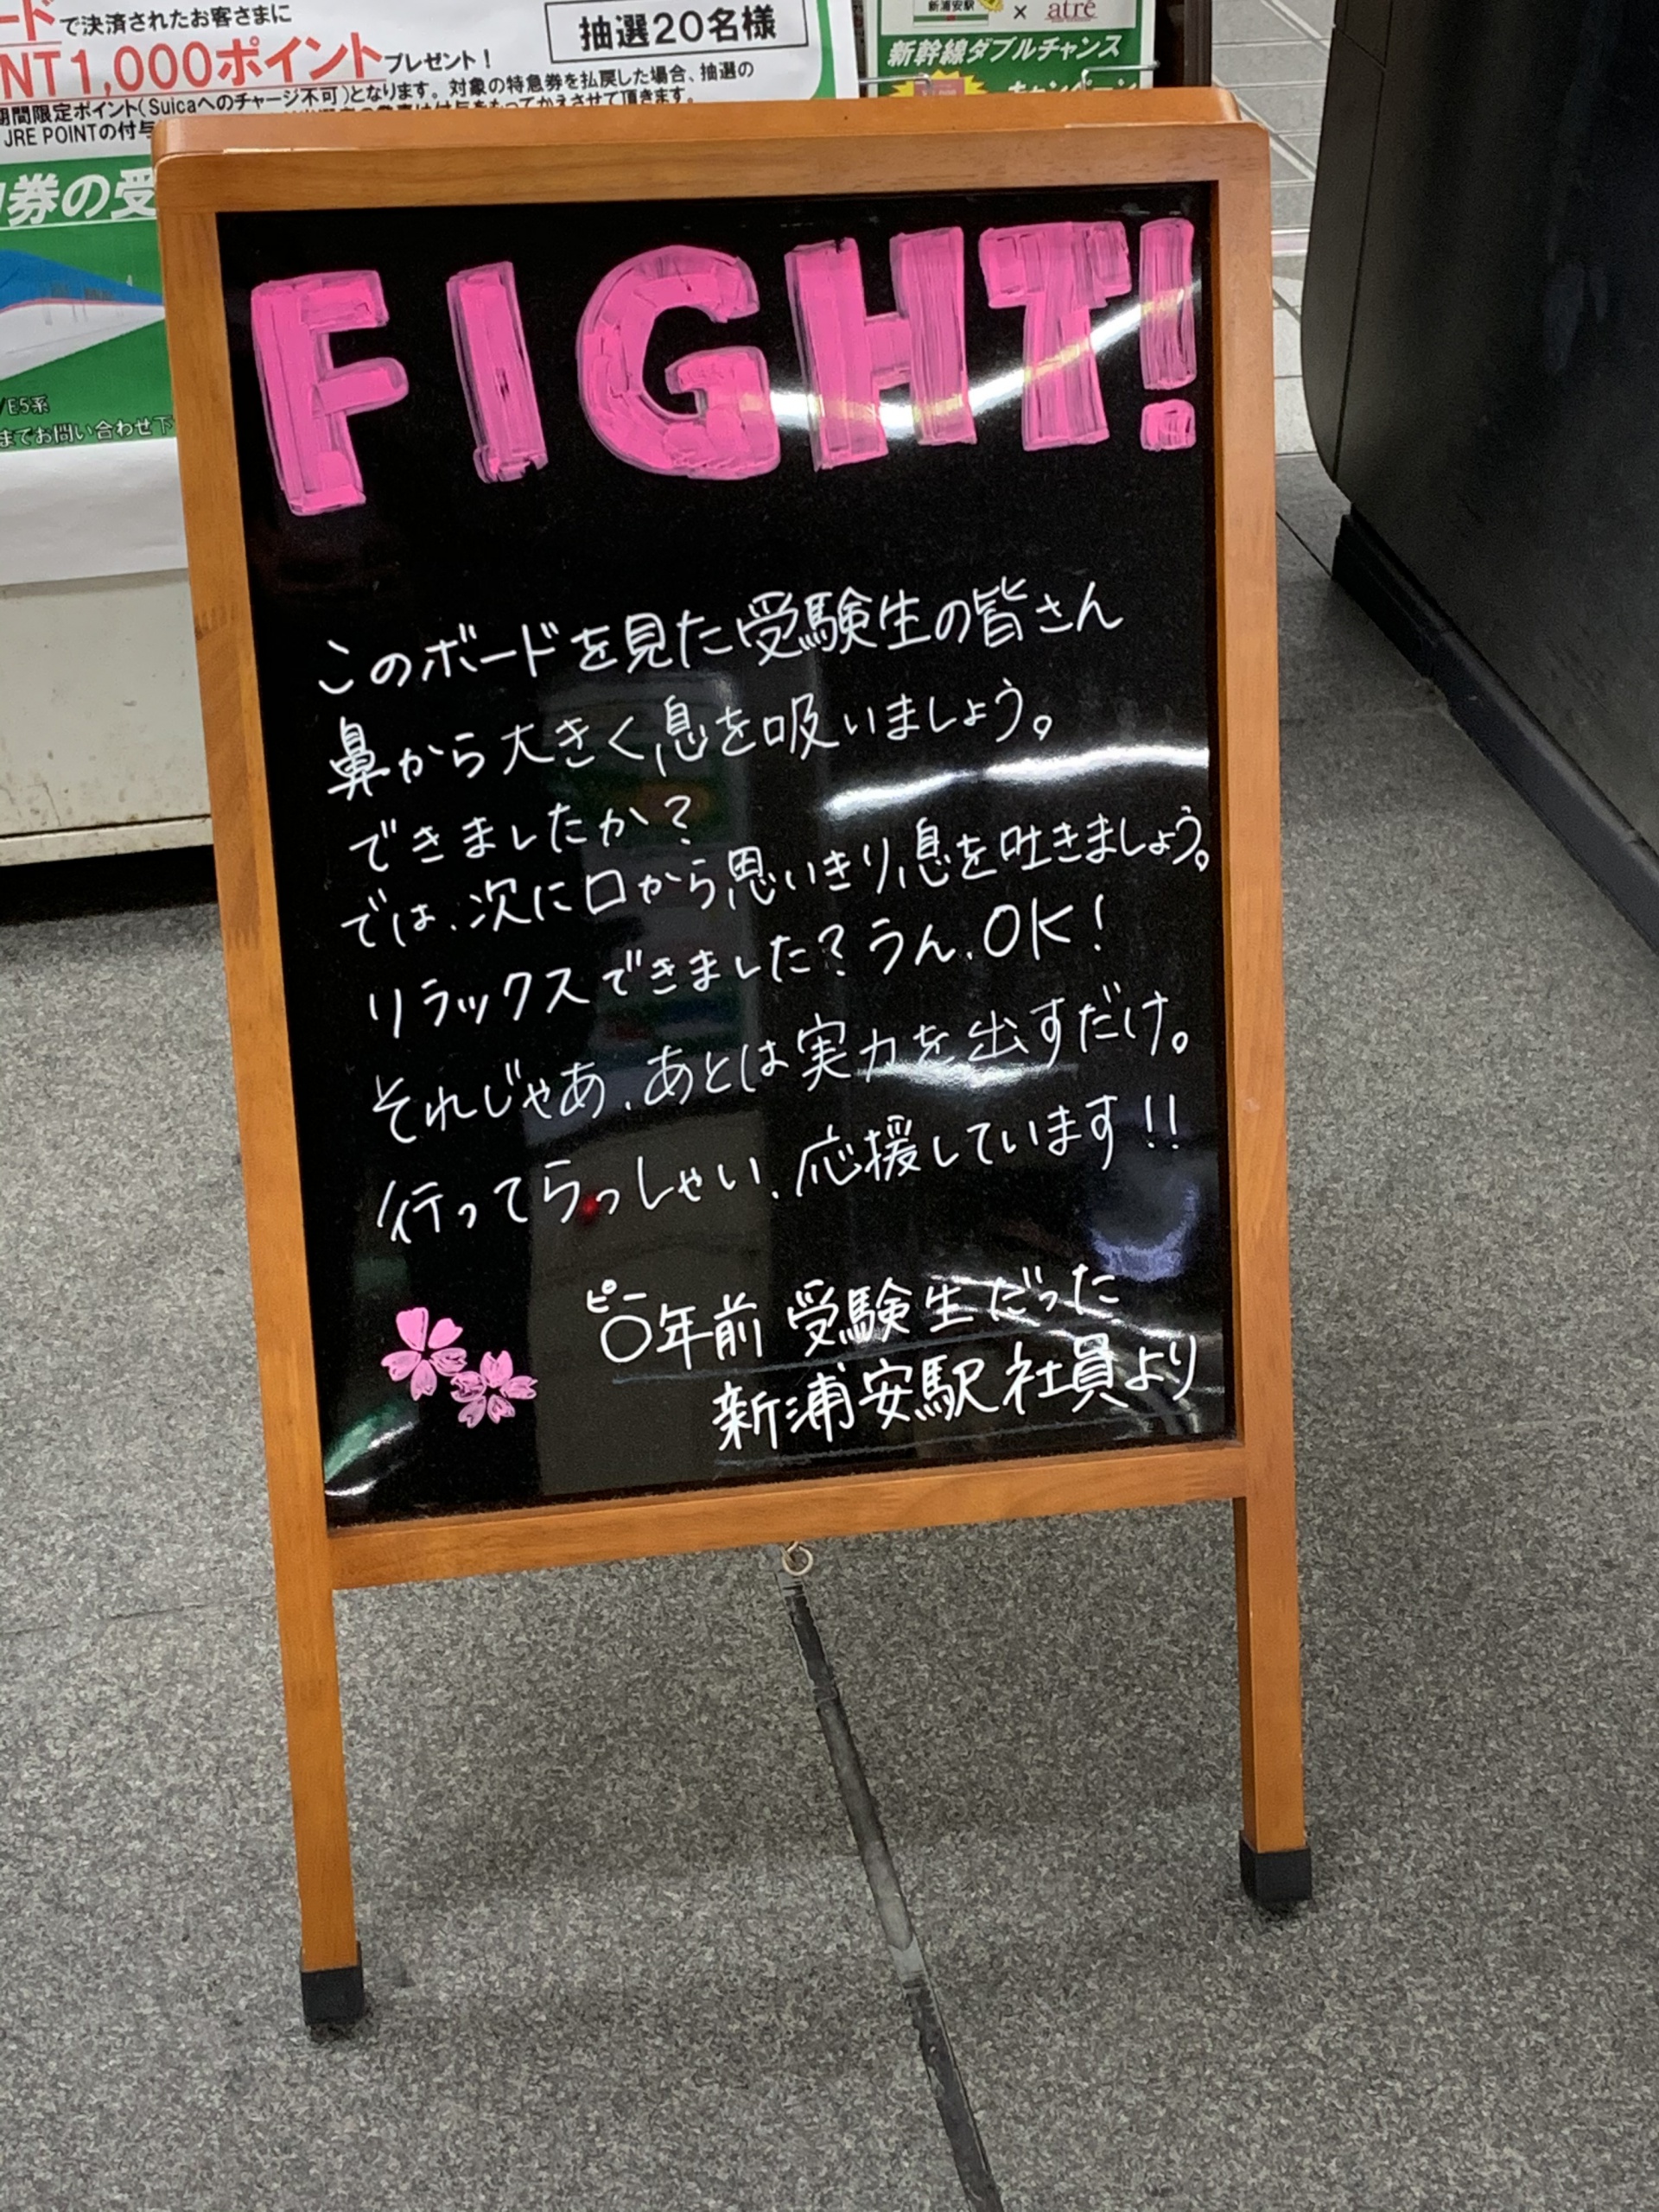 ードで決済されたお客さまに
NT1,000ポイントプレゼント!
抽選20名様
期間限定ポイント(Suicaへのチャージ不可)となります。対象の特急券を払戻した場合、抽選の
JRE POINTの付与
券の受
/E5系
までお問い合わせ下
新浦安駅 × atré
新幹線ダブルチャンス
キャンペーン
FIGHT!
このボードを見た受験生の皆さん
鼻から大きく息を吸いましょう。
できましたか?
では、次に口から思いきり息を吐きましょう。
リラックスできました?うん、OK!
それじゃあ、あとは実力を出すだけ。
行ってらっしゃい、応援しています!!
ピー
〇年前 受験生だった
新浦安駅社員より